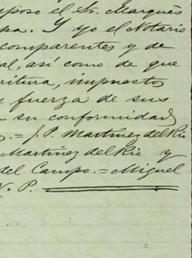 esposo el Sr. Marqués
na. Y yo el Notario
comparentes y de
al, así como de que
ritura, impuestos
y fuerza de sus
su conformidad
= J. P. Martinez del Rio
Martinez del Rio y
del Campo. = Miguel
N. P.